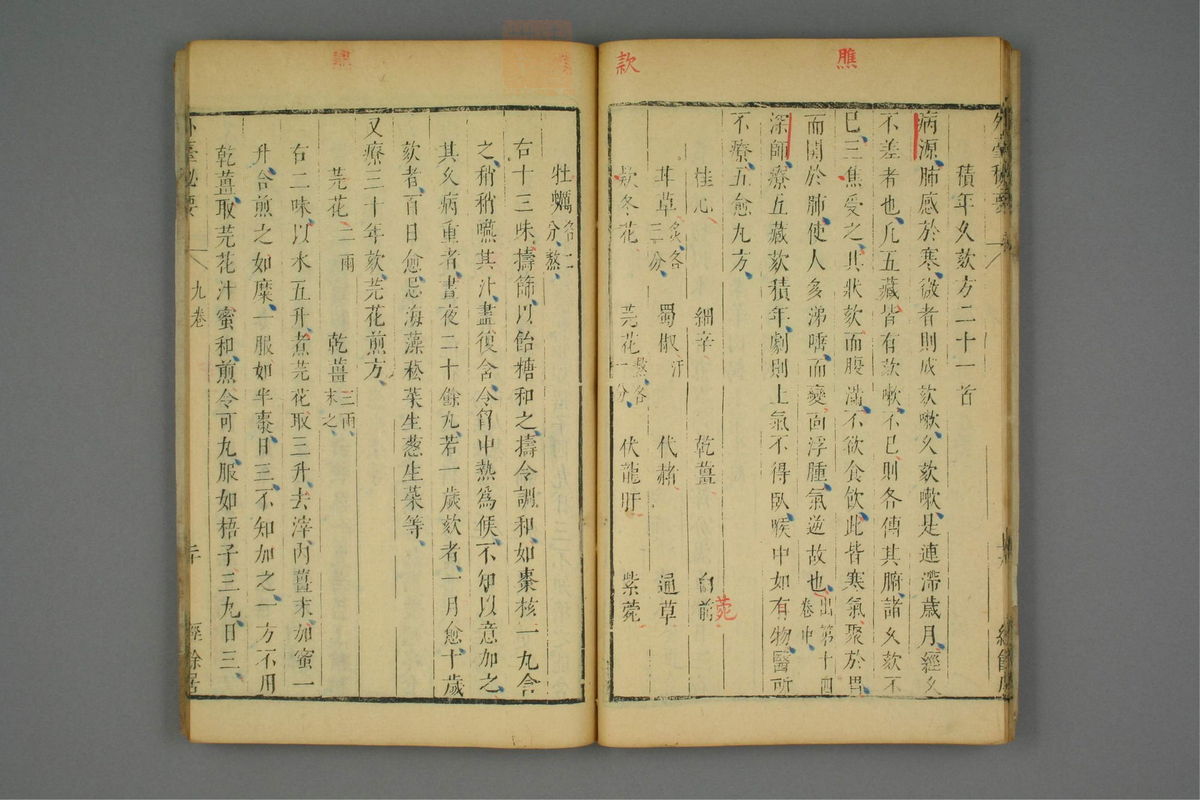 款
膲
積年久欬方二十一首
病源肺感於寒微者則成欬嗽久欬嗽是連滯歲月經久
不差者也凡五藏皆有欬嗽不已則各傳其腑諸久欬不
已三焦受之其狀欬而腹滿不欲食飲此皆寒氣聚於胃
而關於肺使人多涕唾而變面浮腫氣逆故也出第十四卷中
深師療五藏欬積年劇則上氣不得臥喉中如有物醫所
不療五愈丸方
桂心 細辛 乾薑 白前
甘草炙各三分 蜀椒汗 代赭 通草
款冬花 芫花熬各一分 伏龍肝 紫菀
菀
牡蠣各二分熬
右十三味擣篩以飴糖和之擣令調和如棗核一丸含
之稍稍嚥其汁盡復含令胷中熱為候不知以意加之
其久病重者晝夜二十餘丸若一歲欬者一月愈十歲
欬者百日愈忌海藻菘菜生葱生菜等
又療三十年欬芫花煎方
芫花二兩 乾薑三兩末之
右二味以水五升煮芫花取三升去滓內薑末加蜜一
升合煎之如糜一服如半棗日三不知加之一方不用
乾薑取芫花汁蜜和煎令可丸服如梧子三丸日三
外臺祕要
九卷
二十
經餘居